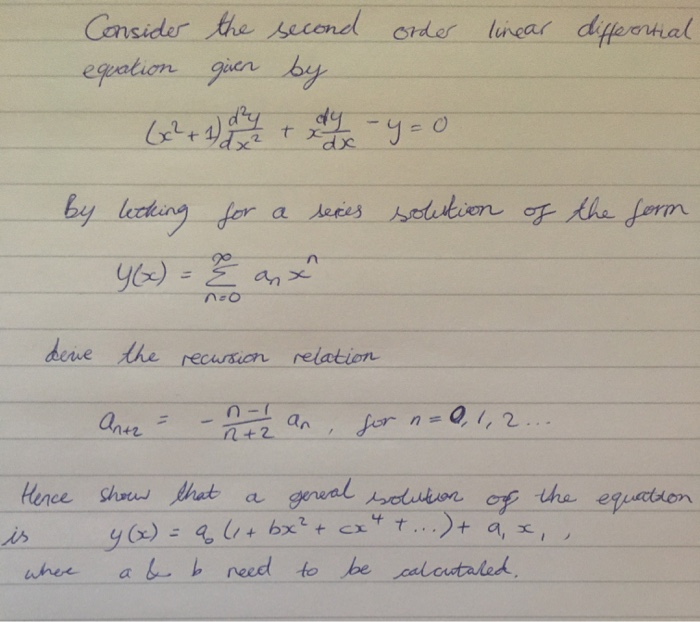 Consider the second order linear differential
equation given by
(x²+1) d²y/dx² + x dy/dx - y = 0
By looking for a series solution of the form
y(x) = ∞ Σ n=0 aₙ xⁿ
derive the recursion relation
aₙ₊₂ = - n-1/n+2 aₙ, for n = 0, 1, 2 ...
Hence show that a general solution of the equation
is y(x) = a₀ (1 + bx² + cx⁴ + ...) + a₁ x, ,
where a & b need to be calculated.